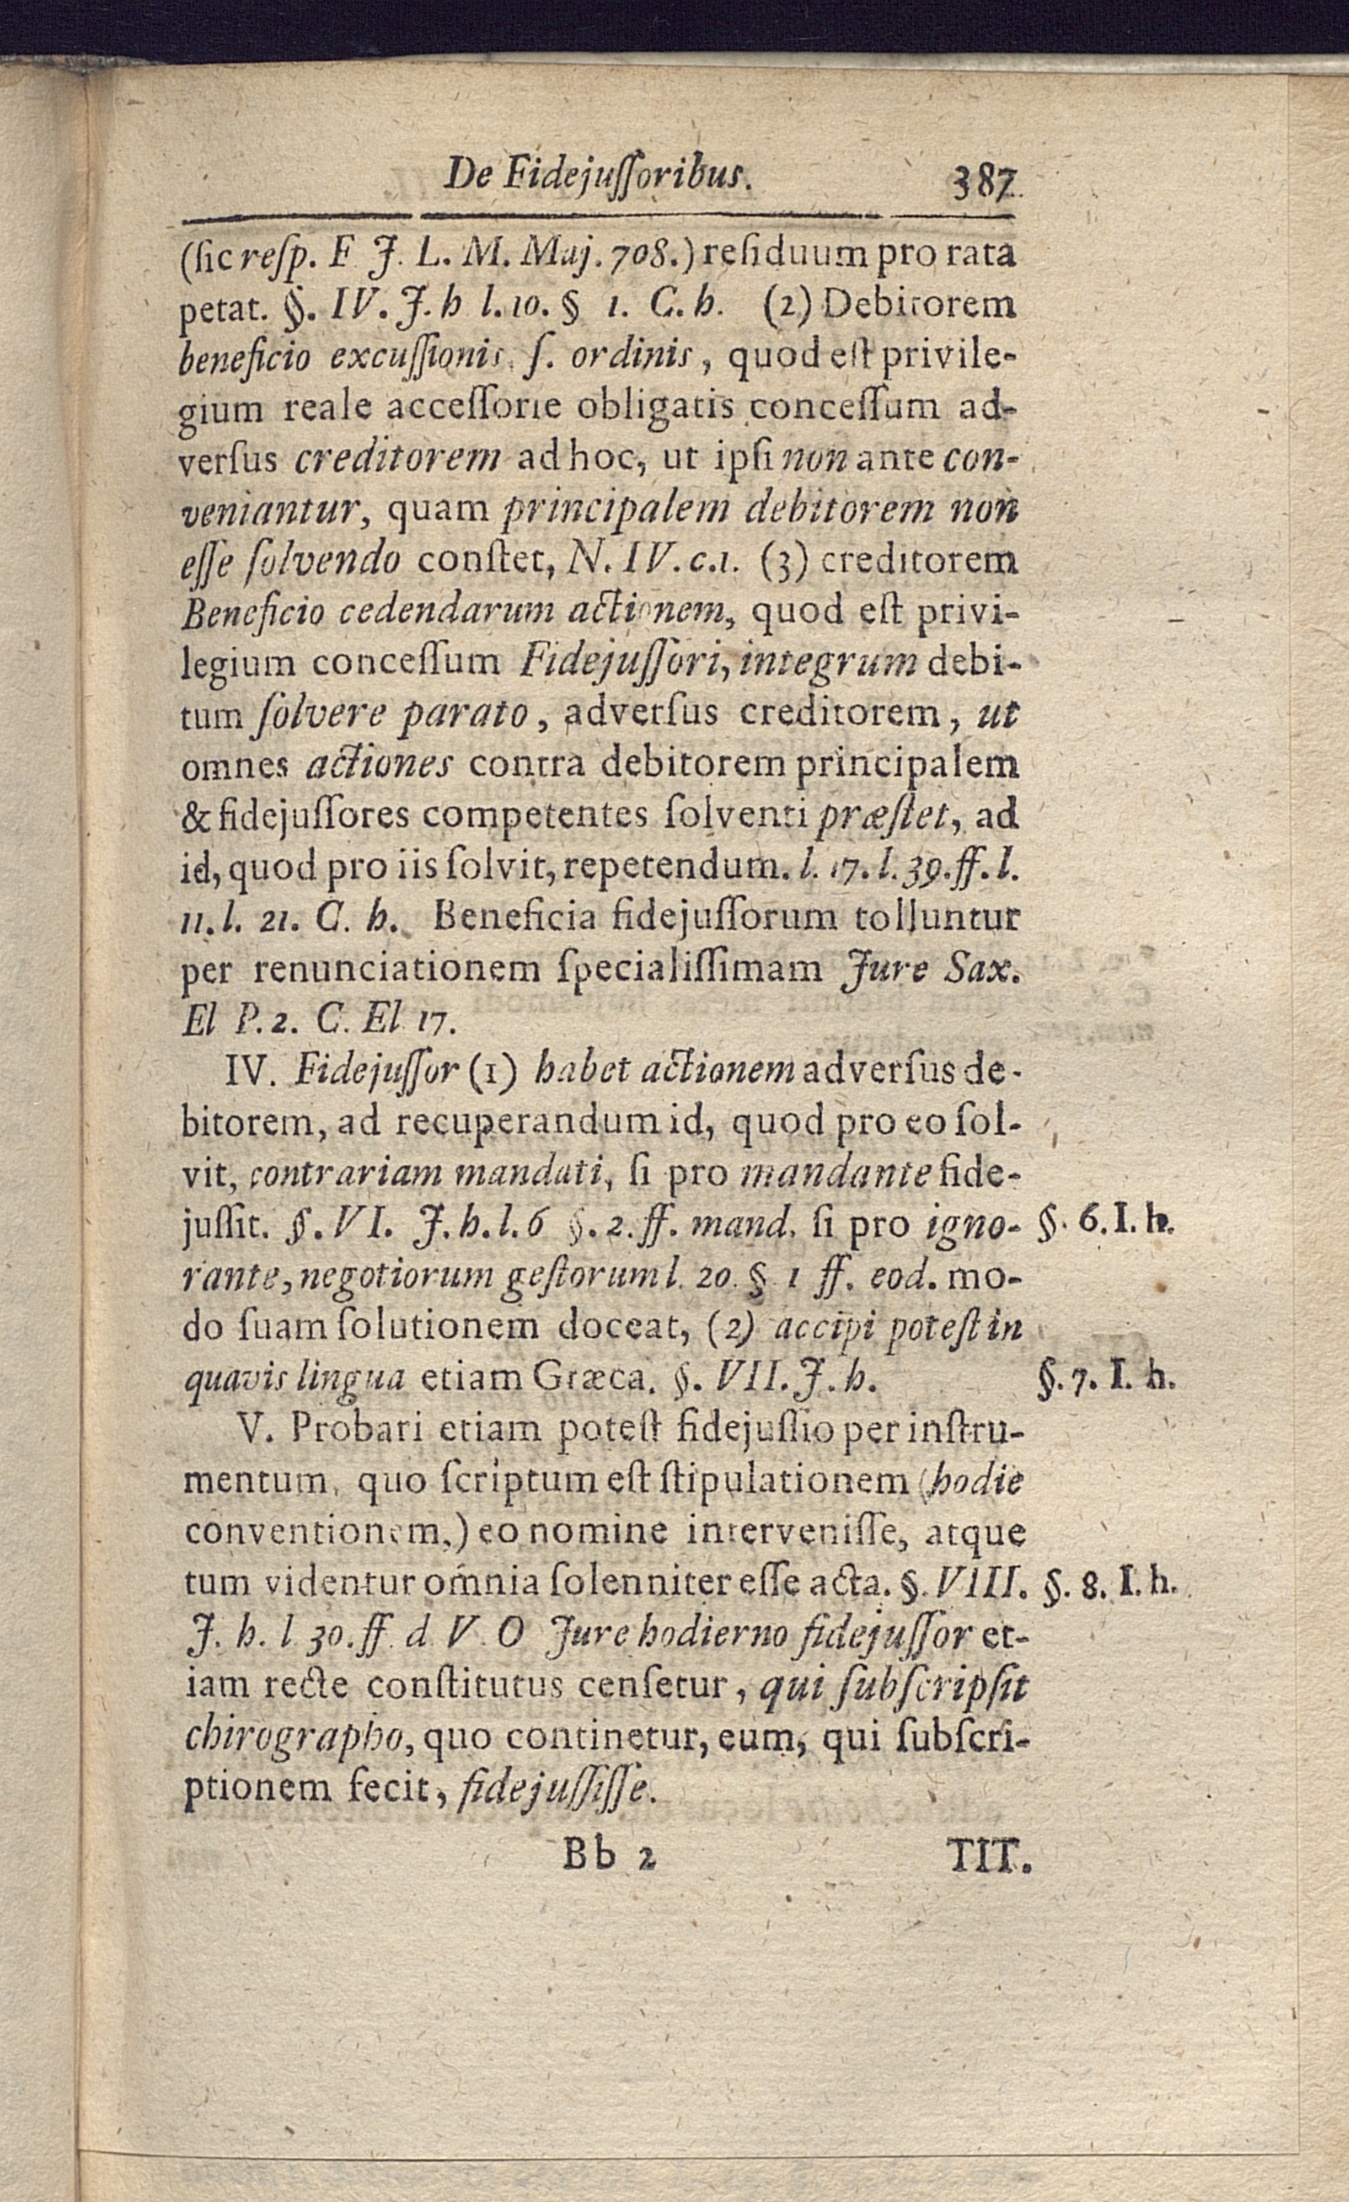 De Fidejuſſoribus. 387
(ſic reſp. F J. L. M. Maj. 708.) reſiduum pro rata
petat. §. IV. J. h l. 10. § 1. C. h. (2) Debitorem
beneficio excuſſionis ſ. ordinis, quod eſt privile-
gium reale acceſſorie obligatis conceſſum ad-
verſus creditorem ad hoc, ut ipſi non ante con-
veniantur, quam principalem debitorem non
eſſe ſolvendo conſtet, N. IV. c. 1. (3) creditorem
Beneficio cedendarum actionem, quod eſt privi-
legium conceſſum Fidejuſſori, integrum debi-
tum ſolvere parato, adverſus creditorem, ut
omnes actiones contra debitorem principalem
& fidejuſſores competentes ſolventi præſtet, ad
id, quod pro iis ſolvit, repetendum. l. 17. l. 39. ff. l.
11. l. 21. C. h. Beneficia fidejuſſorum tolluntur
per renunciationem ſpecialiſſimam Jure Sax.
El P. 2. C. El 17.
IV. Fidejuſſor (1) habet actionem adverſus de-
bitorem, ad recuperandum id, quod pro eo ſol-
vit, contrariam mandati, ſi pro mandante fide-
juſſit. §. VI. J. h. l. 6 §. 2. ff. mand. ſi pro igno- §. 6. I. h.
rante, negotiorum geſtorum l. 20. § 1 ff. eod. mo-
do ſuam ſolutionem doceat, (2) accipi poteſt in
quavis lingua etiam Græca. §. VII. J. h. §. 7. I. h.
V. Probari etiam poteſt fidejuſſio per inſtru-
mentum, quo ſcriptum eſt ſtipulationem (hodie
conventionem,) eo nomine interveniſſe, atque
tum videntur omnia ſolenniter eſſe acta. §. VIII. §. 8. I. h.
J. h. l 30. ff. d. V. O Jure hodierno fidejuſſor et-
iam recte conſtitutus cenſetur, qui ſubſcripſit
chirographo, quo continetur, eum, qui ſubſcri-
ptionem fecit, fidejuſſiſſe.
Bb 2 TIT.